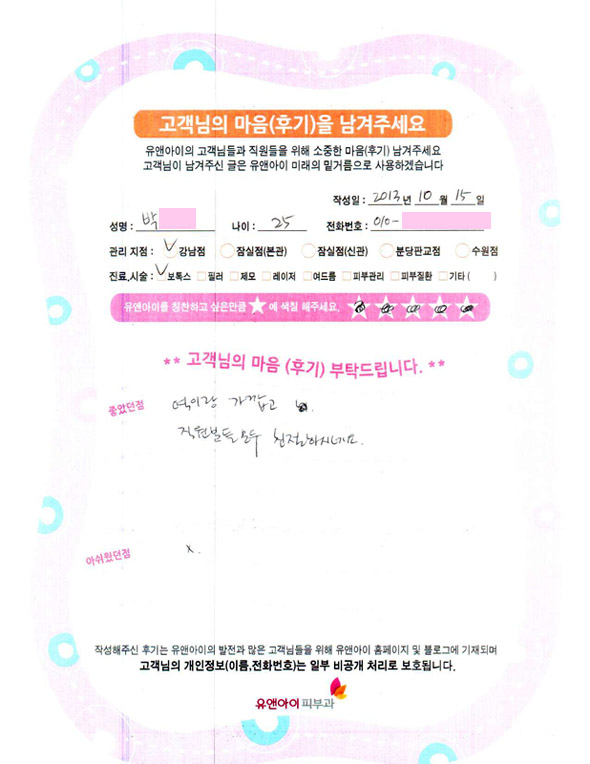 고객님의 마음(후기)을 남겨주세요
유앤아이의 고객님들과 직원들을 위해 소중한 마음(후기) 남겨주세요
고객님이 남겨주신 글은 유앤아이 미래의 밑거름으로 사용하겠습니다
작성일 : 2013년 10월 15일
성명 : 박 나이 : 25 전화번호 : 010-
관리 지점 : 강남점 잠실점(본관) 잠실점(신관) 분당판교점 수원점
진료,시술 : 보톡스 필러 제모 레이저 여드름 피부관리 피부질환 기타 ( )
유앤아이를 칭찬하고 싶은만큼 ★ 에 색칠 해주세요.
** 고객님의 마음 (후기) 부탁드립니다. **
좋았던점 역이랑 가깝고
직원분들 모두 친절하시네요.
아쉬웠던점 x.
작성해주신 후기는 유앤아이의 발전과 많은 고객님들을 위해 유앤아이 홈페이지 및 블로그에 기재되며
고객님의 개인정보(이름,전화번호)는 일부 비공개 처리로 보호됩니다.
유앤아이 피부과